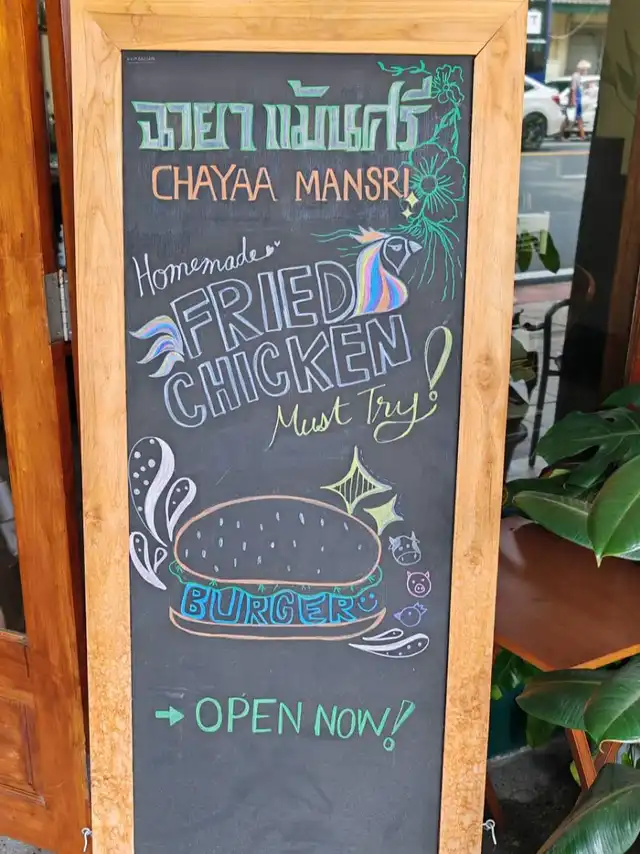 ฉายา แม้นศรี
CHAYAA MANSRI
Homemade
FRIED
CHICKEN
Must Try!
BURGER
→ OPEN NOW!